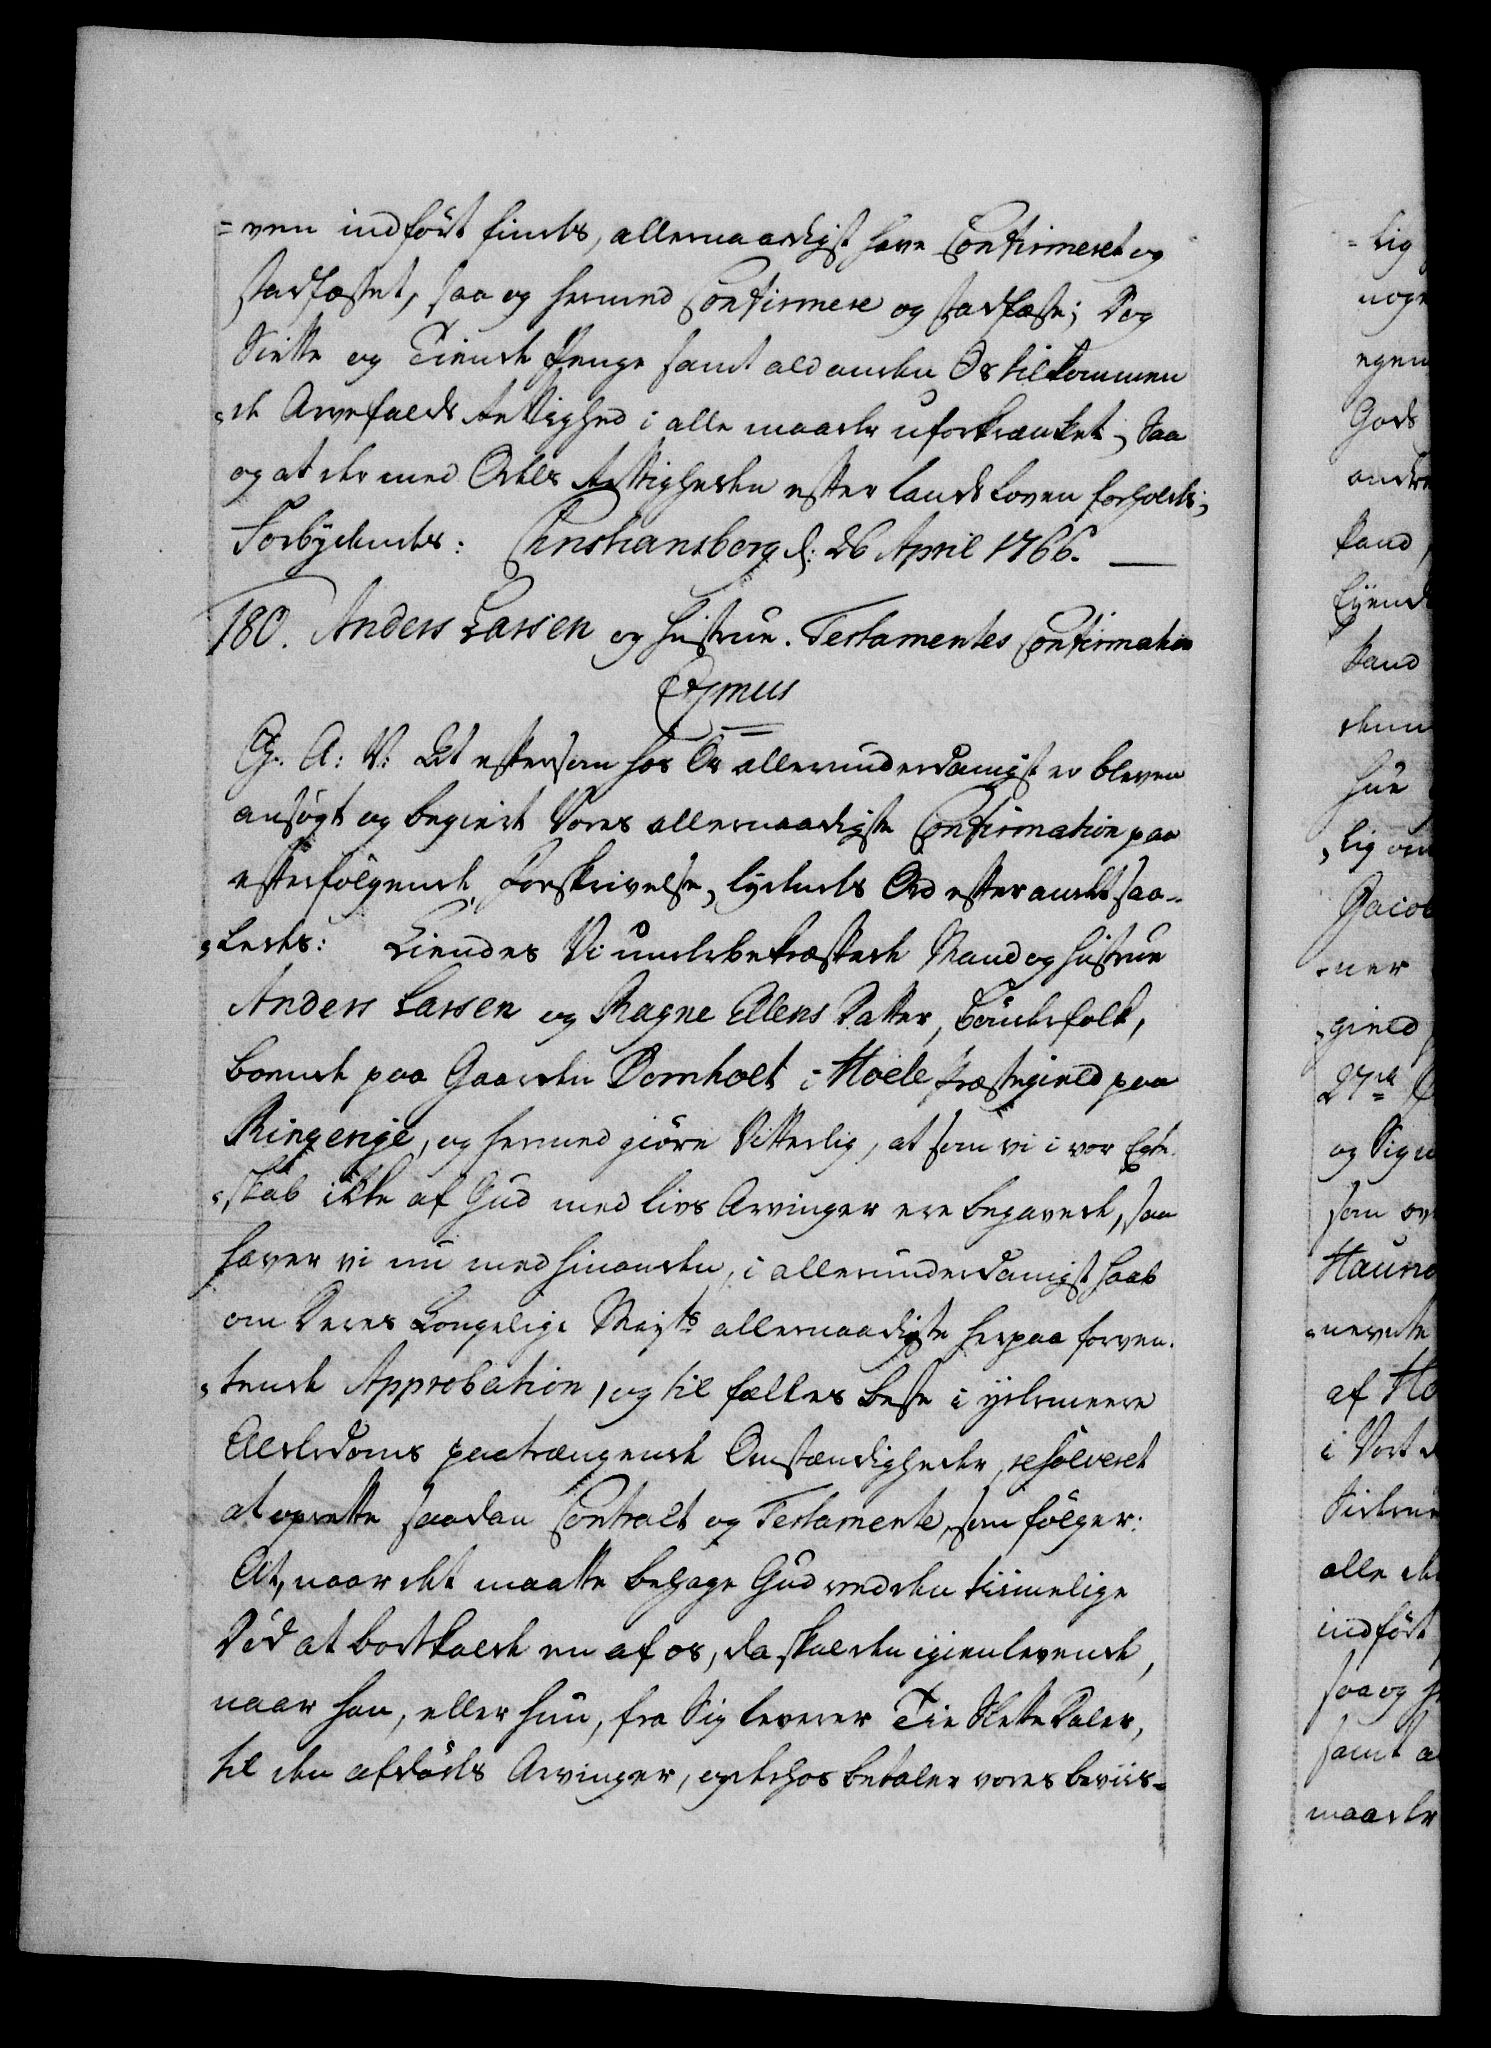 =ven indført findes, allernaadigst have Confirmeret og
stadfæstet, saa og hermed Confirmere og stadfæste; Dog
Siette og Tiende Penge samt ald anden Os tilkommen
=de Arvefalds Rettighed i alle maader uforkrænket, Saa
og at der med Odels Rettigheden efter Lands Loven forholdes;
Forbydendes: Christiansborg d: 26 April 1766.
180. Anders Larsen og Hustrue. Testamentes Confirmation
Gr: A: V: At eftersom hos Os allerunderdanigst er bleven
ansøgt og begiert Vores allernaadigste Confirmation paa
efterfølgende Forskrivelse, lydendes Ord efter andet saa-
=ledes: Kiendes Vi underbekræftede Mand og Hustrue
Anders Larsen og Ragne Ellens Datter, Bøndefolk,
boende paa Gaarden Domholt i Hoele Præstegield paa
Ringerige, og hermed giøre Vitterlig, at som vi i vor Egte-
=skab ikke af Gud med livs Arvinger ere begavede, saa
haver vi nu med hinanden, i allerunderdanigst haab
om Deres Kongelige Mayts allernaadigste herpaa forven-
=tende Approbation, og til fælles beste i ydermeere
Alderdoms paatrængende Omstændigheder, resolveret
at oprette saadan Contract og Testamente, som følger:
At, naar det maatte behage Gud ved den timelige
Død at bortkalde en af os, da skal den igienlevende,
naar han, eller hun, fra Sig leverer Tie Slette Daler,
til den afdødes Arvinger, og derhos betaler vores beviis-
=lig
egen
Gods
Eyend
Stand
hue
=lig
Jacob
=ner
=gield
27de
og Sign
som
af Ho
i Vort
alle de
indført
saa og h
samt a
maader